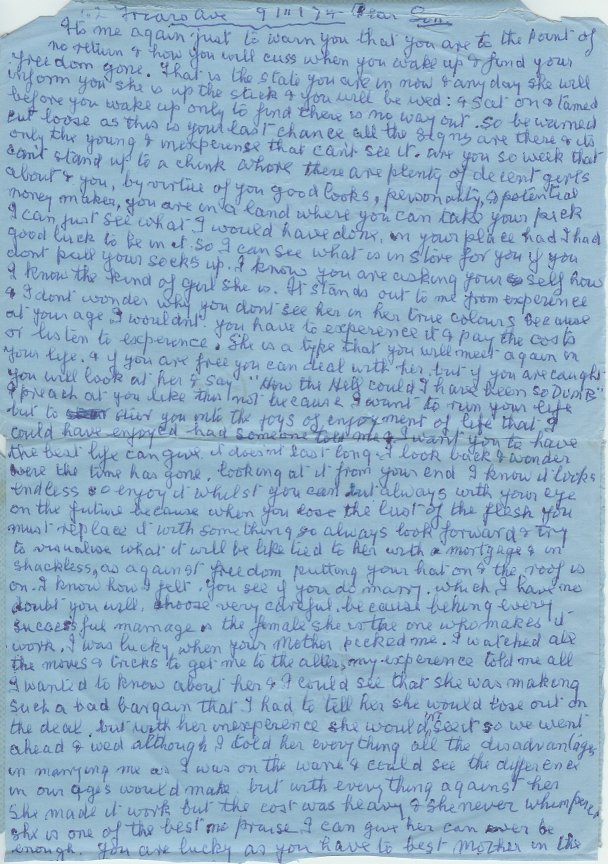 Friars Ave 9 III 74 Dear Son
Its me again just to warn you that you are to the point of
no return & how you will cuss when you wake up & find your
freedom gone. That is the state you are in now & any day she will
inform you she is up the stick & you will be wed. & Sat on & tamed
before you wake up only to find there is no way out. So be warned
cut loose as this is your last chance all the signs are there & its
only the young & inexperience that cant see it. are you so week that
cant stand up to a chink whore there are plenty of decent girls
about & you, by virtue of you good looks, personality, & potential
money maker, you are in a land where you can take your pick
I can just see what I would have done, in your place had I had
good luck to be in it. So I can see what is in store for you if you
dont pull your socks up. I know you are asking your self how
I know the kind of girl she is. It stands out to me from experience
& I dont wonder why you dont see her in her true colours because
at your age I wouldnt you have to experience it & pay the costs
or listen to experience. She is a type that you will meet again in
your life. & if you are free you can deal with her, but if you are caught
you will look at her & say How the Hell could I have been so Dumb
I preach at you like this not because I want to run your life
but to stir you into the joys of enjoyment of life that I
could have enjoyed had someone told me & I want you to have
the best life can give it doesnt last long. I look back & wonder
were the time has gone. looking at it from your end I know it looks
endless so enjoy it whilst you can but always with your eye
on the future because when you lose the lust of the flesh you
must replace it with something so always look forward & try
to visualise what it will be like tied to her with a mortgage & in
shackless, as against freedom putting your hat on & the roof is
on. I know how I felt. you see if you do marry. which I have no
doubt you will, choose very careful, because behing every
successful marriage is the female she is the one who makes it
work, I was lucky when your Mother picked me. I watched all
the moves & tricks to get me to the alter, my experience told me all
I wanted to know about her & I could see that she was making
such a bad bargain that I had to tell her she would lose out on
the deal. but with her inexperence she would not see it so we went
ahead & wed although I told her everything all the disadvantages
in marrying me as I was on the wane & could see the difference
in our ages would make but with everything against her
She made it work but the cost was heavy & she never whimpered
she is one of the best no praise I can give her can ever be
enough. you are lucky as you have to best Mother in the